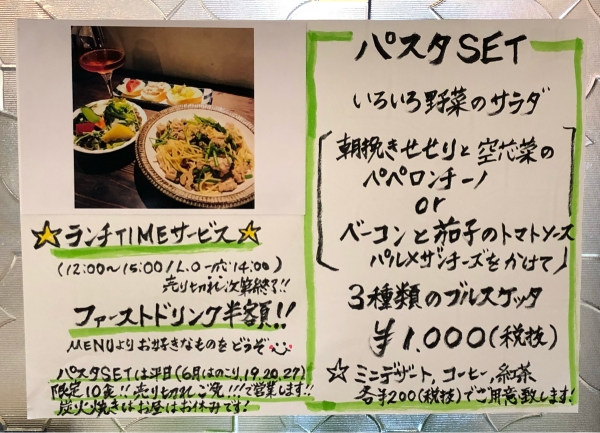 ☆ランチTIMEサービス☆
(12:00〜15:00/L.O 一応14:00)
売り切れ次第終了!!
ファーストドリンク半額!!
MENUよりお好きなものをどうぞ
パスタSETは平日(6月はのこり、19,20,27)
限定10食!!売り切れご免!!!で営業します!!
炭火焼きはお昼はお休みです!
パスタSET
いろいろ野菜のサラダ
朝挽きせせりと空芯菜の
ペペロンチーノ
or
ベーコンと茄子のトマトソース
パルメザンチーズをかけて
3種類のブルスケッタ
¥1,000(税抜)
☆ミニデザート、コーヒー、紅茶
各¥200(税抜)でご用意致します!